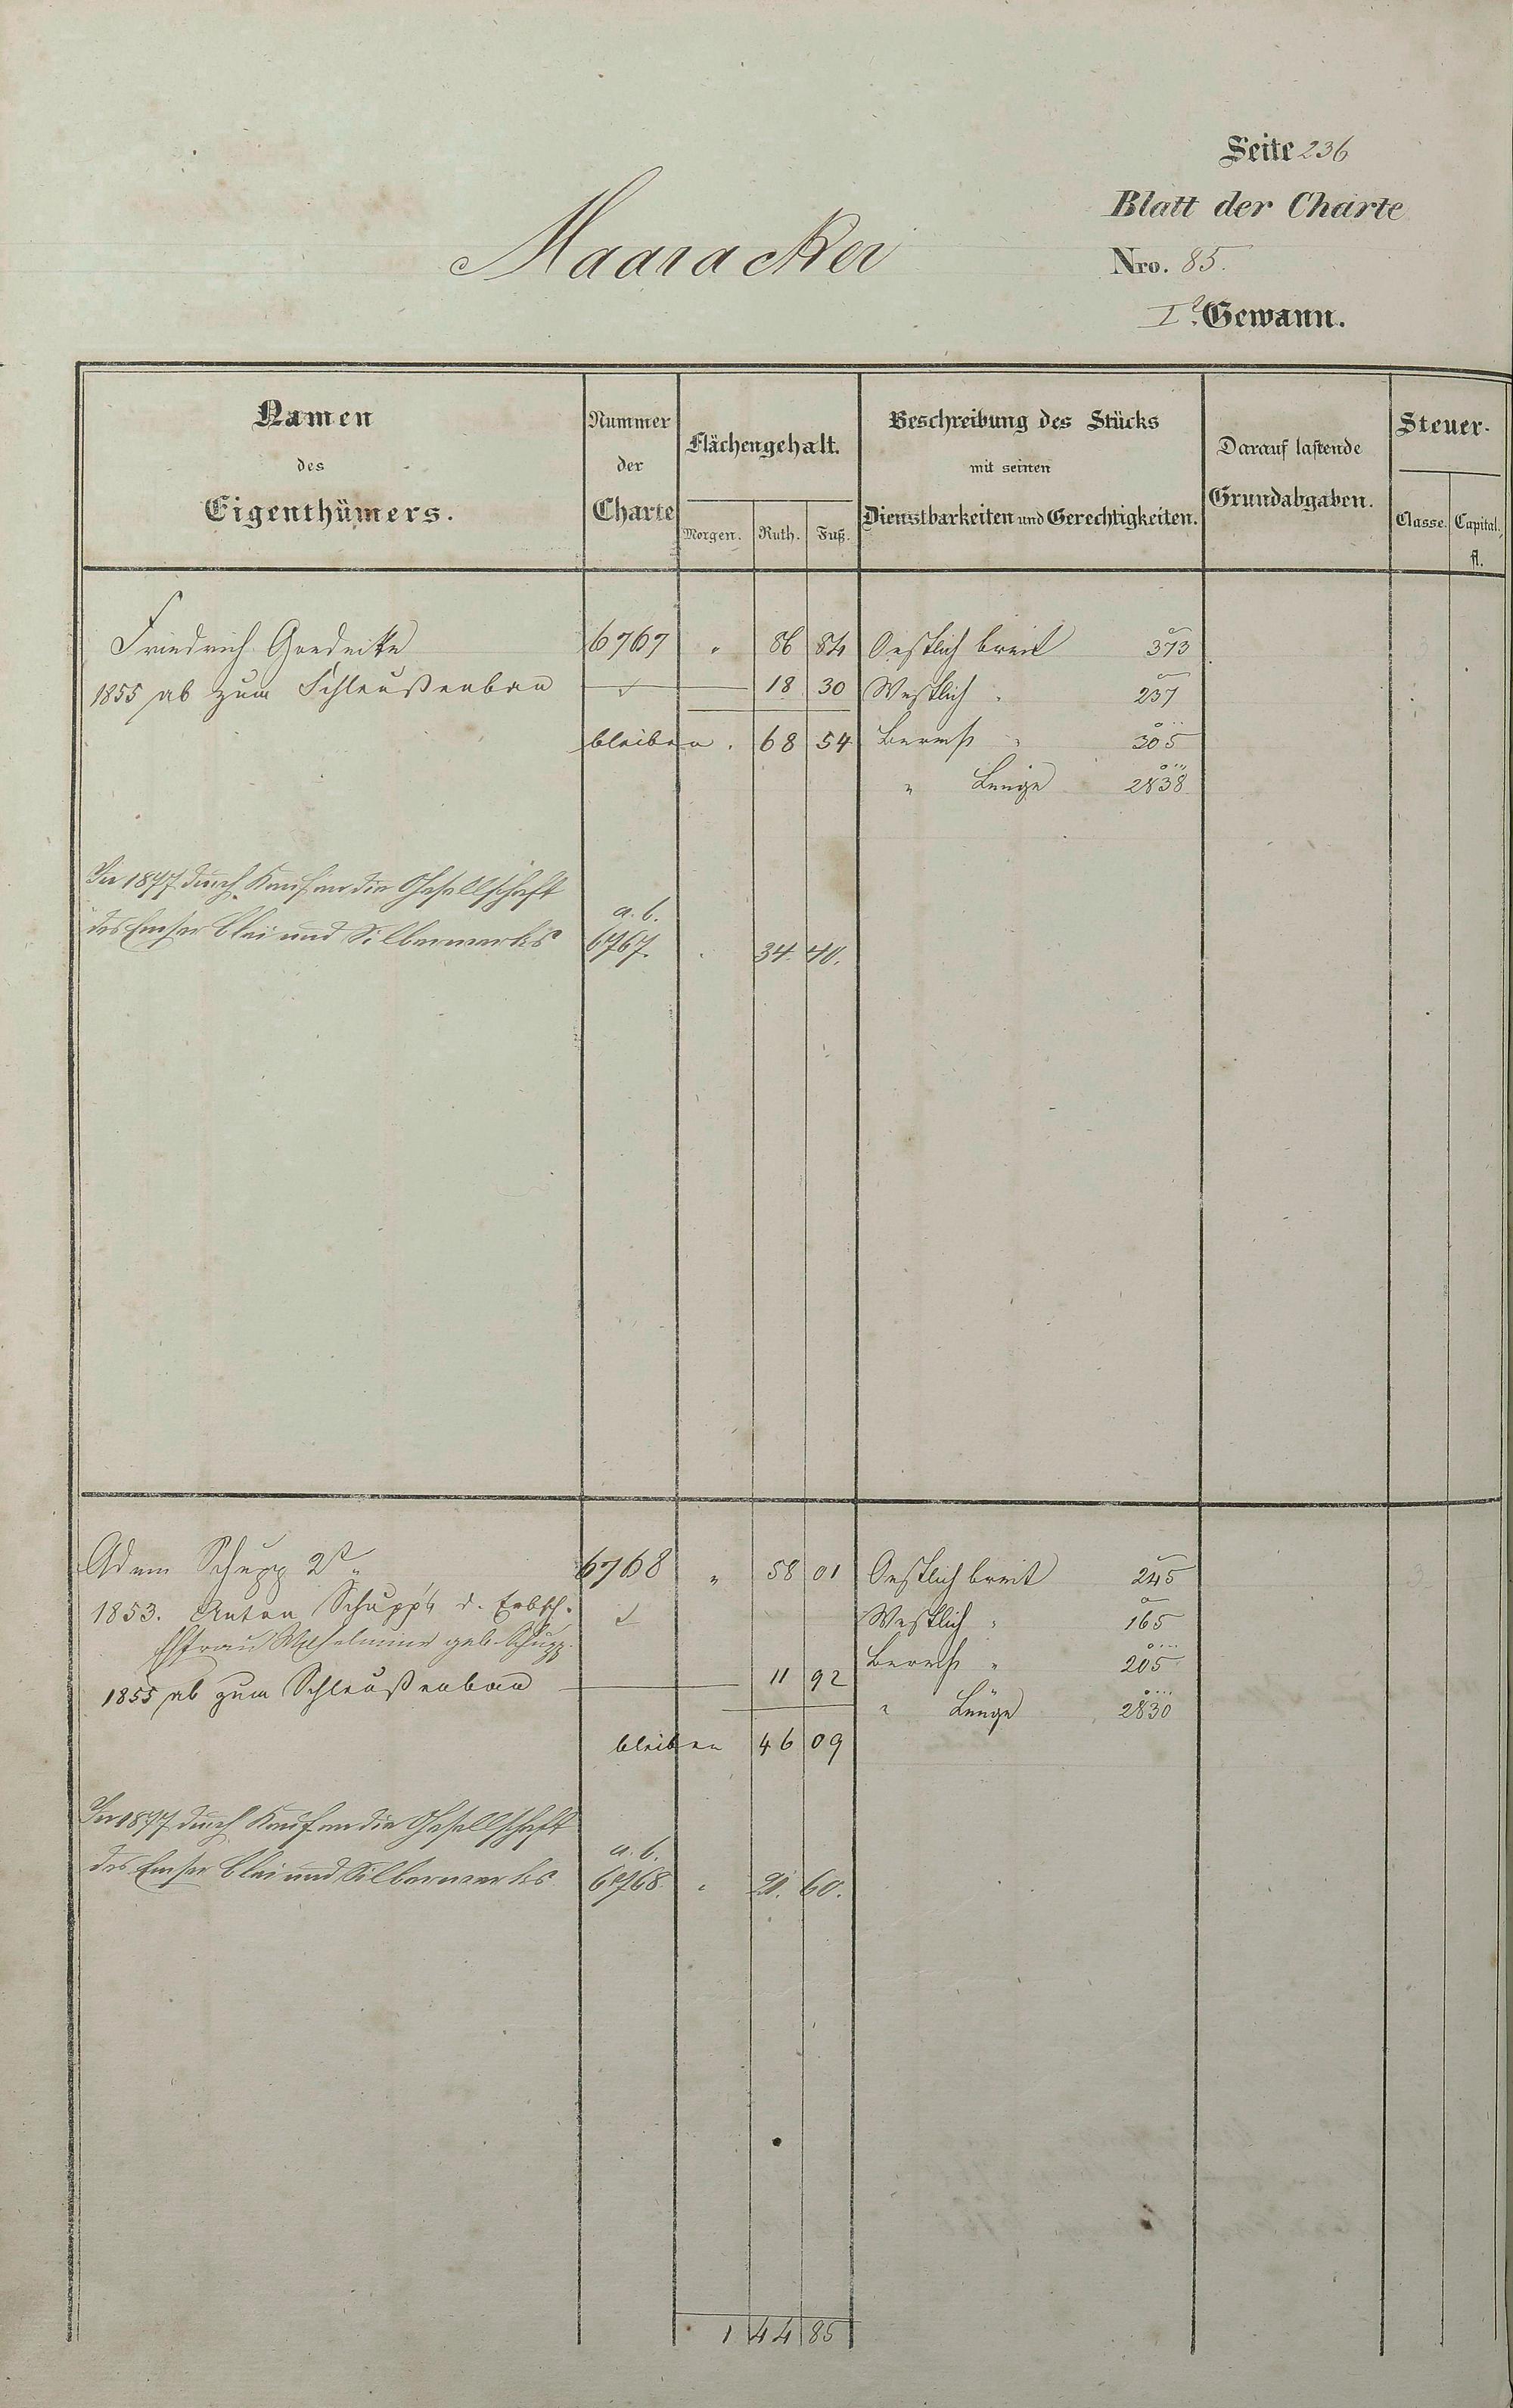 Seite 236
Blatt der Charte
Maaracker
Nro. 85.
I. Gewann.
Namen des Eigenthümers.
Nummer der Charte
Flächengehalt.
Morgen. Ruth. Fuß.
Beschreibung des Stücks mit seinen Dienstbarkeiten und Gerechtigkeiten.
Darauf lastende Grundabgaben.
Steuer-
Classe. Capital. fl.
Friedrich Goedecke 6767 " 86 84 Oestlich breit 373
1855 ab zum Schleußenbau 18 30 Westlich " 237
bleiben . 68 54 Berech " 305
" Länge 2838
In 1877 durch Kauf an die Gesellschaft
des Emser Blei und Silberwerks
a. b.
6767. . 34. 40.
Adam Schupp 2r " 6768 " 58 01 Oestlich breit 245
1853. Anton Schupp's d. Erbsch. Westlich " 165
Ehefrau Wilhelmine geb. Schupp. Berech " 205
1855 ab zum Schleußenbau 11 92 " Länge 2830
bleiben 46 09
In 1877 durch Kauf an die Gesellschaft
des Emser Blei und Silberwerks
a. b.
6768. " 60.
1 44 85